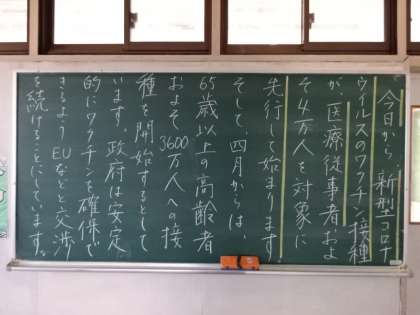 今日から、新型コロナ
ウイルスのワクチン接種
が、医療従事者およ
そ4万人を対象に
先行して始まります。
そして、四月からは
65歳以上の高齢者
およそ3600万人への接
種を開始するとして
います。政府は安定
的にワクチンを確保で
きるようEUなどと交渉
を続けることにしています。